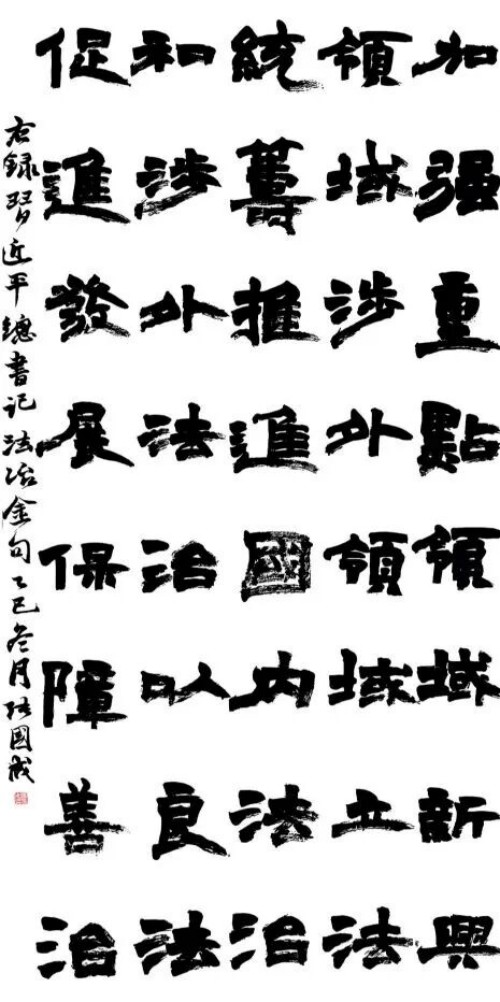 加强重點領域新興
領域涉外領域立法
統籌推進國内法治
和涉外法治以良法
促進發展保障善治
右録習近平總書记法治金句乙巳冬月張國成